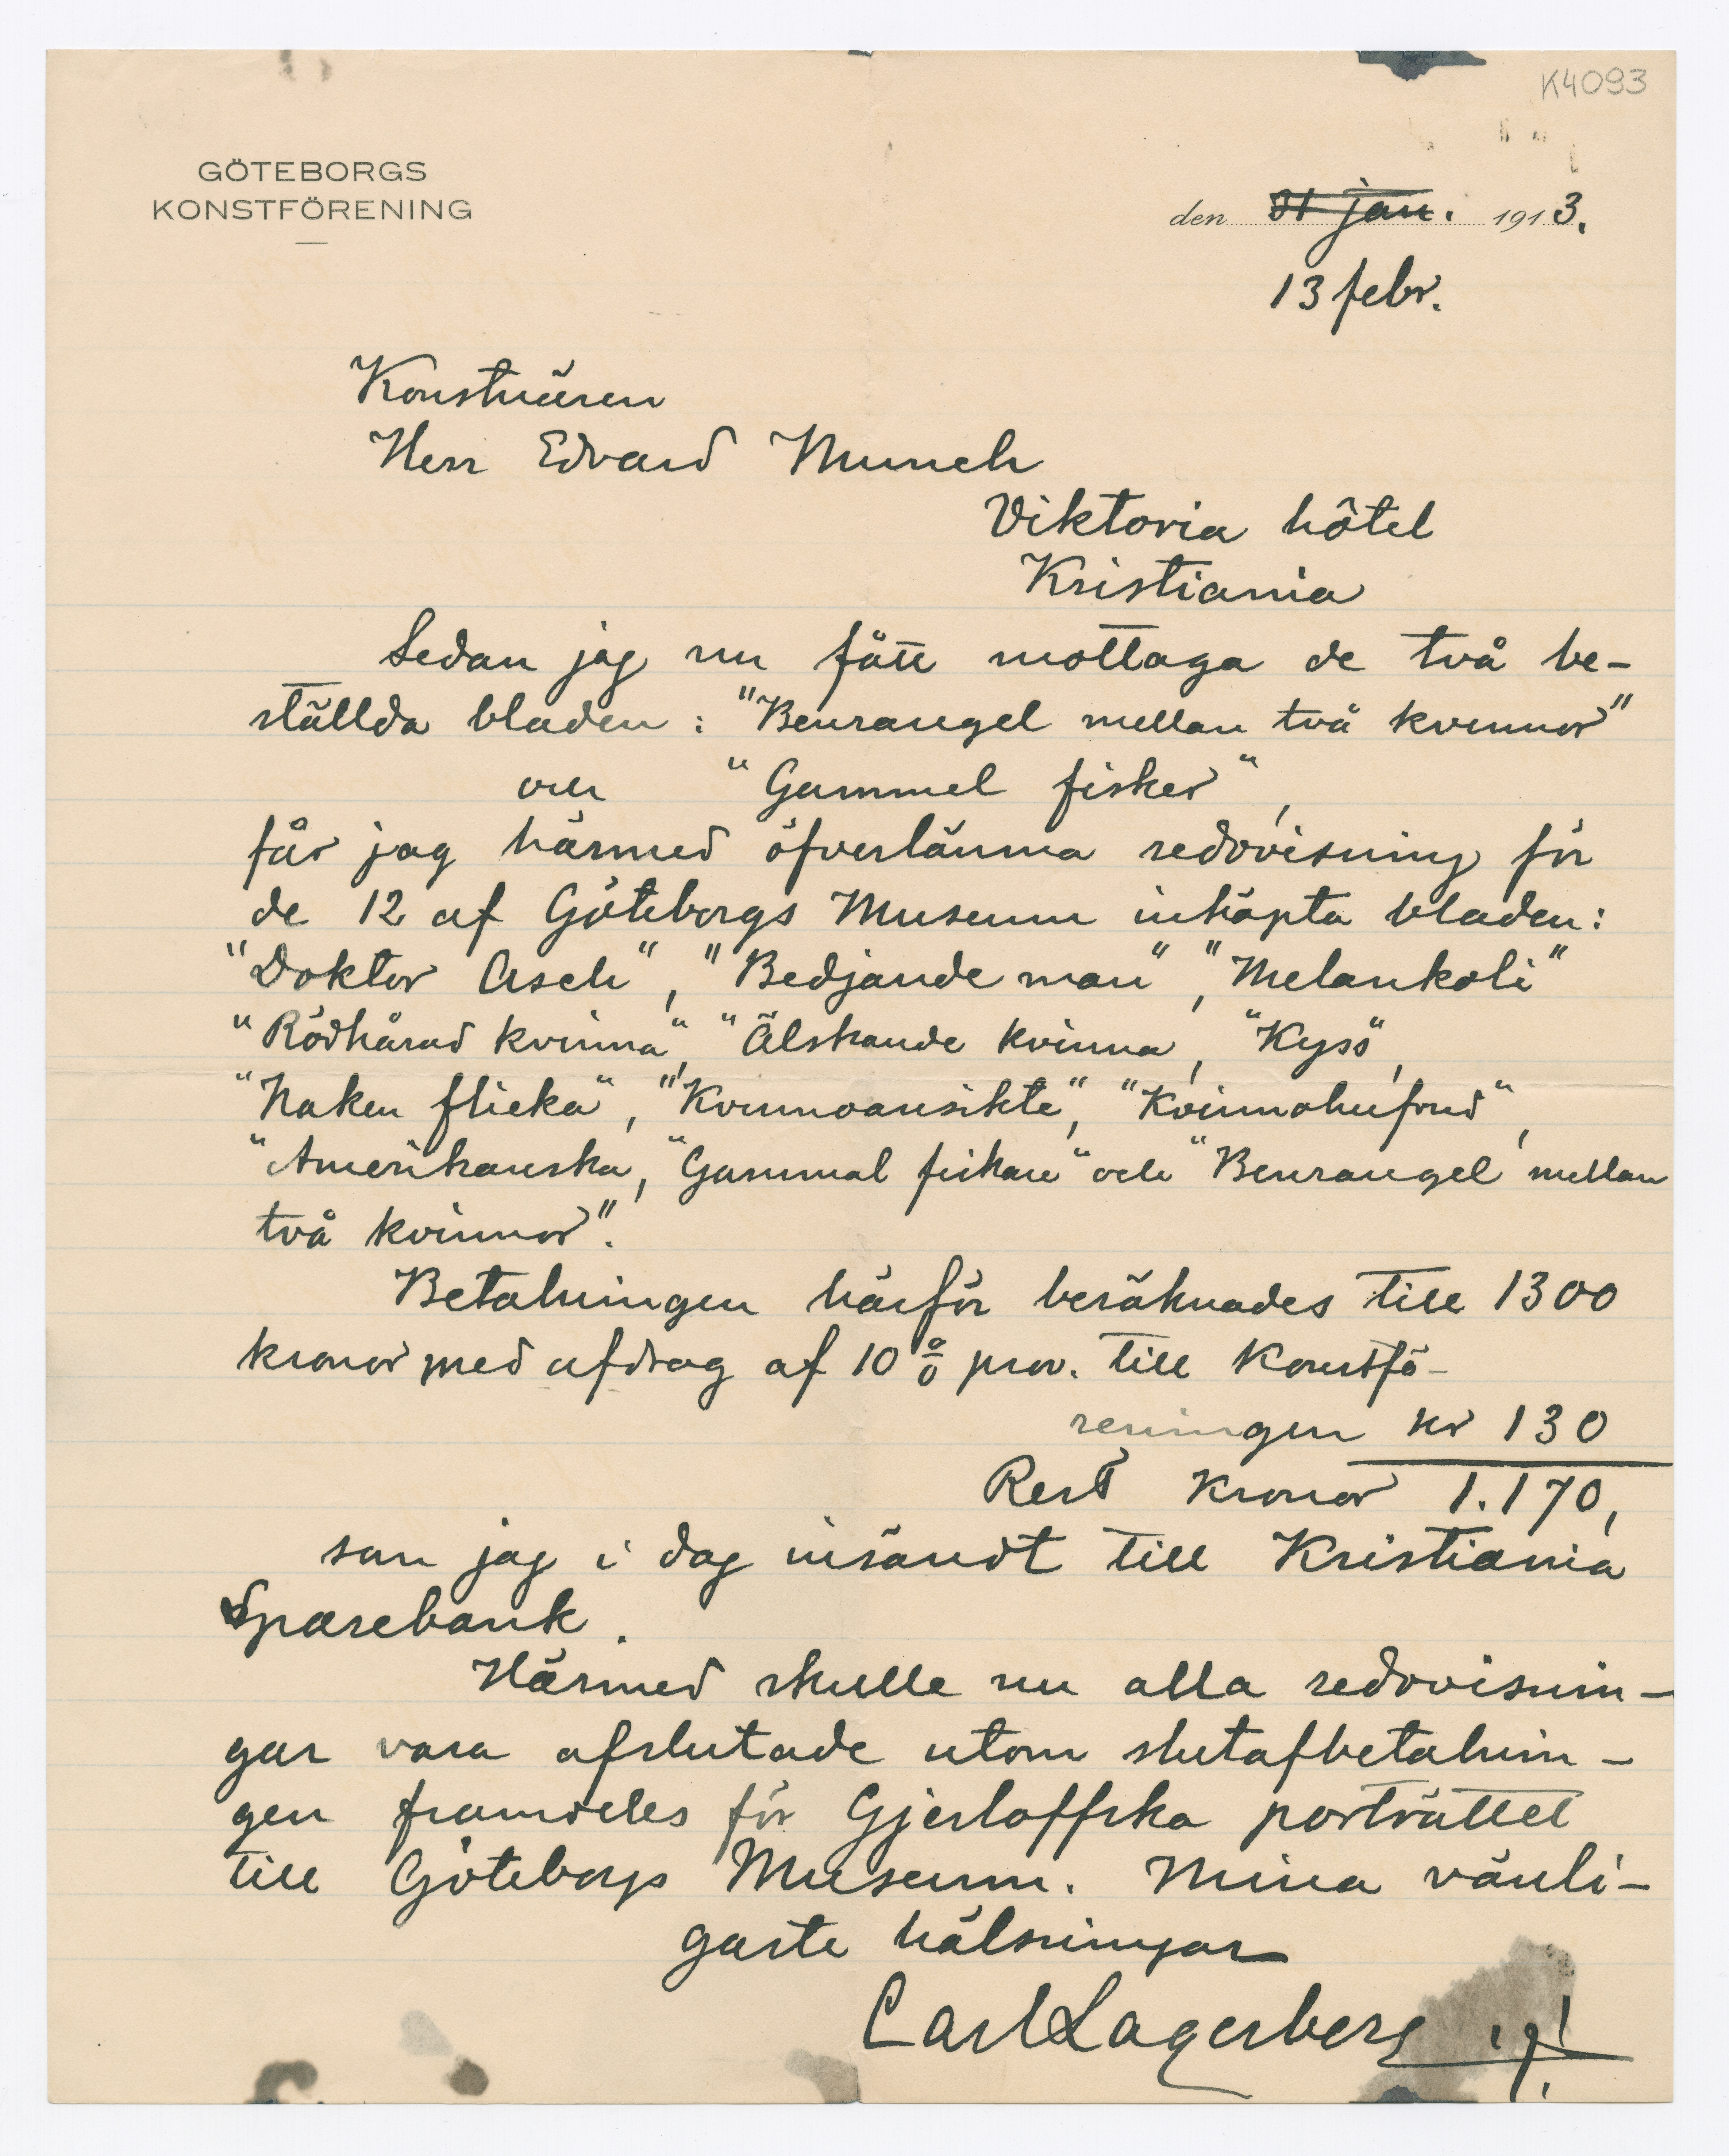 K4093
GÖTEBORGS
KONSTFÖRENING
den 31 jan. 1913.
13 febr.
Konstnären
Herr Edvard Munch
Viktoria hôtel
Kristiania
Sedan jag nu fått mottaga de två be-
ställda bladen: "Benrangel mellan två kvinnor"
och "Gammel fisker",
får jag härmed öfverlämna redovisning för
de 12 af Göteborgs Museum inköpta bladen:
"Doktor Asch", "Bedjande man", "Melankoli"
"Rödhårad kvinna", "Älskande kvinna, "Kyss",
"Naken flicka", "Kvinnoansikte", "Kvinnohufvud",
"Amerikanska, "Gammal fiskare" och "Benrangel mellan
två kvinnor".
Betalningen härför beräknades till 1300
kronor med afdrag af 10 % prov. till Konstfö-
reningen kr 130
Rest kronor 1.170,
som jag i dag insändt till Kristiania
Sparebank.
Härmed skulle nu alla redovisnin-
gar vara afslutade utom slutafbetalnin-
gen framdeles för Gjerloffska porträttet
till Göteborgs Museum. Mina vänli-
gaste hälsningar
Carl Lagerberg